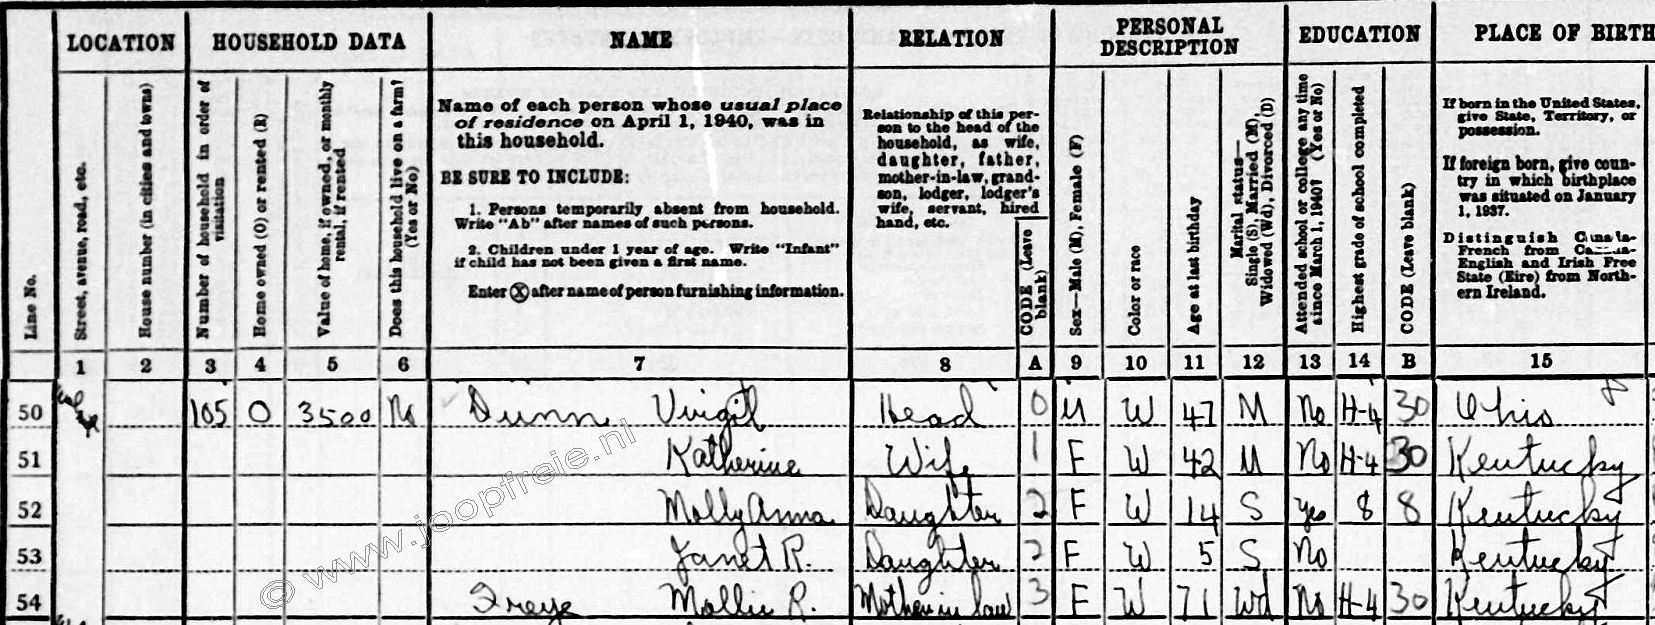 LOCATION HOUSEHOLD DATA NAME RELATION PERSONAL DESCRIPTION EDUCATION PLACE OF BIRTH
Line No.
Street, avenue, road, etc.
House number (in cities and towns)
Number of household in order of visitation
Home owned (O) or rented (R)
Value of home, if owned, or monthly rental, if rented
Does this household live on a farm? (Yes or No)
Name of each person whose usual place
of residence on April 1, 1940, was in
this household.
BE SURE TO INCLUDE:
1. Persons temporarily absent from household.
Write "Ab" after names of such persons.
2. Children under 1 year of age. Write "Infant"
if child has not been given a first name.
Enter Ⓧ after name of person furnishing information.
Relationship of this per-
son to the head of the
household, as wife,
daughter, father,
mother-in-law, grand-
son, lodger, lodger's
wife, servant, hired
hand, etc.
CODE (Leave blank)
Sex—Male (M), Female (F)
Color or race
Age at last birthday
Marital status—
Single (S), Married (M),
Widowed (Wd), Divorced (D)
Attended school or college any time
since March 1, 1940? (Yes or No)
Highest grade of school completed
CODE (Leave blank)
If born in the United States,
give State, Territory, or
possession.
If foreign born, give coun-
try in which birthplace
was situated on January
1, 1937.
Distinguish Canada-
French from Canada-
English and Irish Free
State (Eire) from North-
ern Ireland.
1 2 3 4 5 6 7 8 A 9 10 11 12 13 14 B 15
50 105 O 3500 No Dunn Virgil Head 0 M W 47 M No H-4 30 Ohio
51 Katherine Wife 1 F W 42 M No H-4 30 Kentucky
52 Molly Anna Daughter 2 F W 14 S Yes 8 8 Kentucky
53 Janet R. Daughter 2 F W 5 S No Kentucky
54 Freye Mollie R. Mother in law 3 F W 71 Wd No H-4 30 Kentucky
@ www.joopfreie.nl